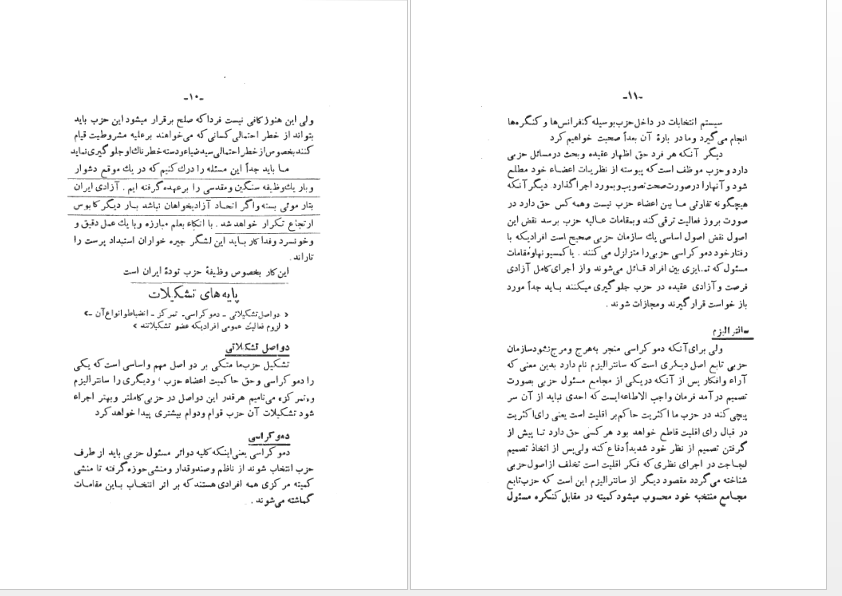 -۱۰-
ولی این هنوز کافی نیست فردا که صلح برقرار میشود این حزب باید
بتواند از خطر احتمالی کسانی که می‌خواهند بر علیه مشروطیت قیام
کنند بخصوص از خطر احتمالی سید ضیاء و دسته خطرناک او جلوگیری نماید
ما باید جداً این مسئله را درک کنیم که در یك موقع دشوار
و بار یك وظیفه سنگین و مقدسی را بر عهده گرفته ایم . آزادی ایران
بتار موئی بسته و اگر اتحاد آزادیخواهان نباشد بار دیگر کابوس
ارتجاع تکرار خواهد شد . با اتکاء بعلم مبارزه و با یك عمل دقیق و
و خونسرد و فداکار باید این لشگر جیره خواران استبداد پرست را
تاراند.
این کار بخصوص وظیفهٔ حزب تودهٔ ایران است
پایه های تشکیلات
« دو اصل تشکیلاتی ـ دموکراسی ـ تمرکز ـ انضباط و انواع آن ـ»
« لزوم فعالیت عمومی افرادیکه عضو تشکیلاتند »
دو اصل تشکیلاتی
تشکیل حزب‌ها متکی بر دو اصل مهم و اساسی است که یکی
را دموکراسی و حق حاکمیت اعضاء حزب ، و دیگری را سانترالیزم
و تمرکز می‌نامیم هر قدر این دو اصل در حزبی کاملتر و بهتر اجراء
شود تشکیلات آن حزب قوام و دوام بیشتری پیدا خواهد کرد
دموکراسی
دموکراسی یعنی اینکه کلیه دوائر مسئول حزبی باید از طرف
حزب انتخاب شوند از ناظم و صندوقدار و منشی حوزه گرفته تا منشی
کمیته مرکزی همه افرادی هستند که بر اثر انتخاب باین مقامات
گماشته می‌شوند .
-۱۱-
سیستم انتخابات در داخل حزب بوسیله کنفرانس‌ها و کنگره‌ها
انجام می‌گیرد و ما در بارهٔ آن بعداً صحبت خواهیم کرد
دیگر آنکه هر فرد حق اظهار عقیده و بحث در مسائل حزبی
دارد و حزب موظف است که پیوسته از نظریات اعضاء خود مطلع
شود و آنها را در صورت صحت تصویب و بمورد اجرا گذارد دیگر آنکه
هیچگونه تفاوتی ما بین اعضاء حزب نیست و همه کس حق دارد در
صورت بروز فعالیت ترقی کند و بمقامات عالیه حزب برسد نقض این
اصول نقض اصول اساسی یك سازمان حزبی صحیح است افرادیکه با
رفتار خود دموکراسی حزبی را متزلزل می‌کنند . یا کمسیونها و مقامات
مسئول که تمایزی بین افراد قائل می‌شوند و از اجرای کامل آزادی
فرصت و آزادی عقیده در حزب جلوگیری میکنند باید جداً مورد
باز خواست قرار گیرند و مجازات شوند .
سانترالیزم
ولی برای آنکه دموکراسی منجر به هرج و مرج نشود سازمان
حزبی تابع اصل دیگری است که سانترالیزم نام دارد به‌ین معنی که
آراء و افکار پس از آنکه در یکی از مجامع مسئول حزبی بصورت
تصمیم در آمد فرمان واجب الاطاعه ایست که احدی نباید از آن سر
پیچی کند در حزب ما اکثریت حاکم بر اقلیت است یعنی رای اکثریت
در قبال رای اقلیت قاطع خواهد بود هر کسی حق دارد تا پیش از
گرفتن تصمیم از نظر خود شدیداً دفاع کند ولی پس از اتخاذ تصمیم
لجاجت در اجرای نظری که فکر اقلیت است تخلف از اصول حزبی
شناخته می گردد مقصود دیگر از سانترالیزم این است که حزب تابع
مجامع منتخبه خود محسوب میشود کمیته در مقابل کنگره مسئول